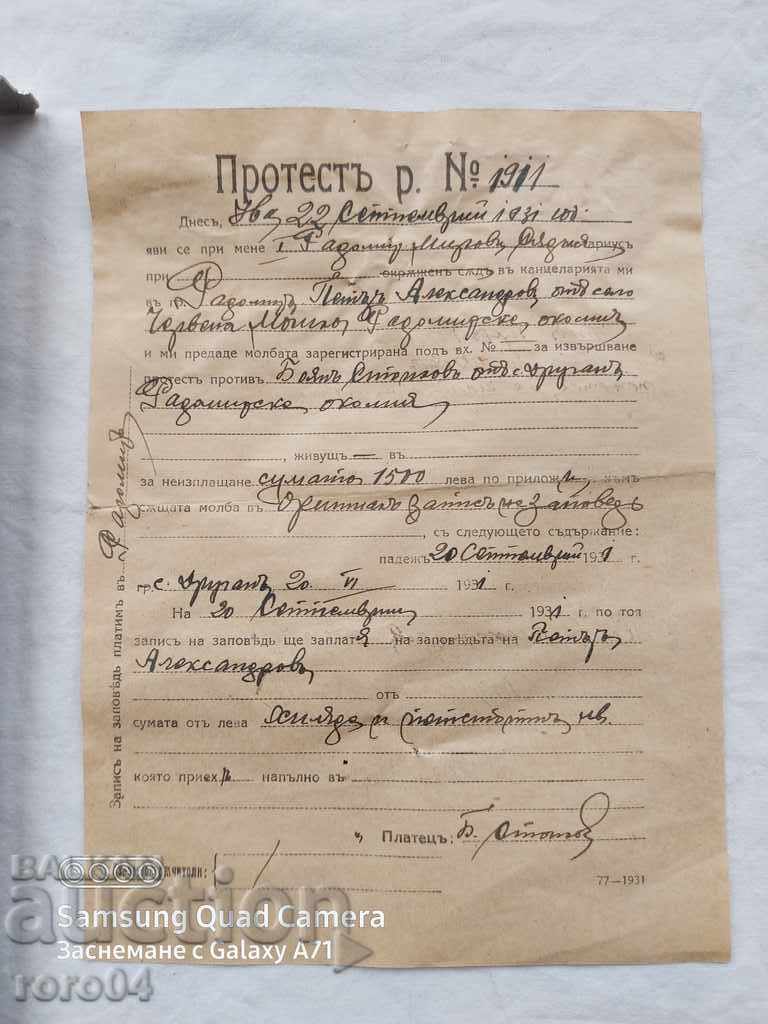 Протестъ р. № 1911
Днесъ, 22 Септемврий 1931 год.
яви се при мене I Радомир. Мирови Сѫдия нотариусъ
при окрѫженъ сѫдъ въ канцеларията ми
въ гр. Радомиръ Петъръ Александровъ отъ село
Червена Могила, Радомирска околия
и ми предаде молбата зарегистрирана подъ вх. № — за извършване
протестъ противъ Боянъ Стоиловъ отъ с. Друганъ
Радомирска околия,
, живущъ — въ
за неизплащане сумата 1500 лева по приложения къмъ
сѫщата молба въ оригиналъ записъ на заповедь
, съ следующето съдържание:
падежъ 20 Септемврий 1931 г.
гр. с. Друганъ 20. VI 1931 г.
На 20 Септемврий 1931 г. по тоя
записъ на заповѣдь ще заплатя на заповѣдьта на Петъръ
Александровъ
отъ
сумата отъ лева хиляда и петстотинъ лв.
която приехъ напълно въ
Платецъ: Б. Стоилов
77—1931
Записъ на заповѣдь платимъ въ Радомиръ
auction
roro04
Samsung Quad Camera
Заснемане с Galaxy A71